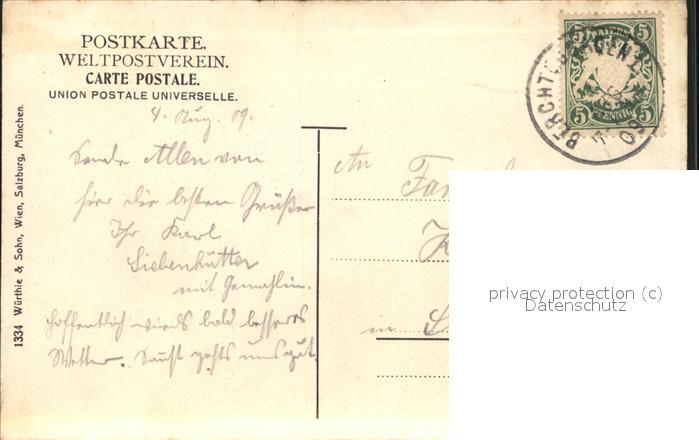 POSTKARTE.
WELTPOSTVEREIN.
CARTE POSTALE.
UNION POSTALE UNIVERSELLE.
1334 Würthle & Sohn, Wien, Salzburg, München.
4. Aug. 09.
Sende Allen von
hier die besten Grüße
Ihr Karl
Siebenhütter
mit Gemahlin.
Hoffentlich wirds bald besseres
Wetter. Sonst gehts uns gut.
An Fam
in
5 5
5 PFENNIG 5
BERCHTESGADEN 2
privacy protection (c)
Datenschutz